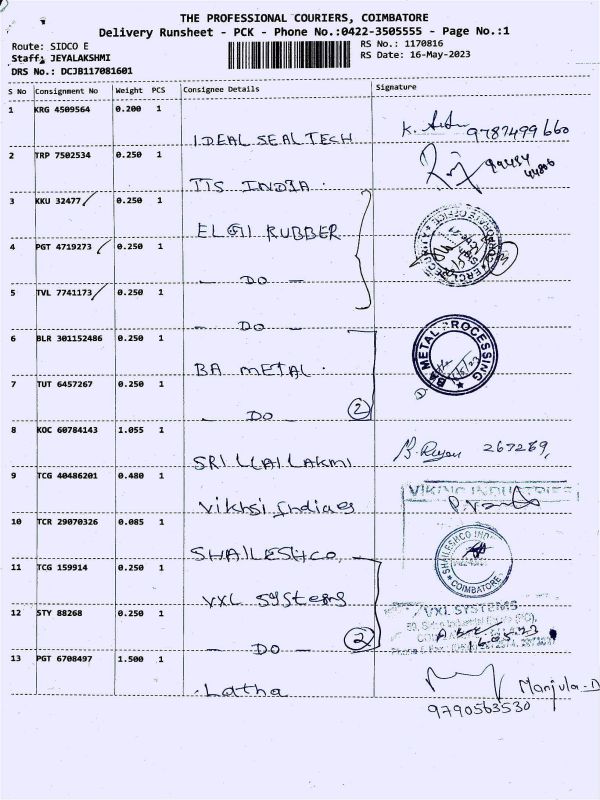 THE PROFESSIONAL COURIERS, COIMBATORE
Delivery Runsheet - PCK - Phone No.:0422-3505555 - Page No.:1
Route: SIDCO E
RS No.: 1170816
Staff: JEYALAKSHMI
RS Date: 16-May-2023
DRS No.: DCJB117081601
S No Consignment No Weight PCS Consignee Details Signature
1 KRG 4509564 0.200 1
IDEAL SEAL TECH K. 9787499660
2 TRP 7502534 0.250 1
TTS INDIA.
3 KKU 32477 0.250 1
ELGI RUBBER
4 PGT 4719273 0.250 1
- DO -
5 TVL 7741173 0.250 1
- DO -
6 BLR 301152486 0.250 1
BA METAL. BA METAL PROCESSING
7 TUT 6457267 0.250 1
- DO - 2
8 KOC 60784143 1.055 1
SRI LLAI LAKAMI 267269,
9 TCG 40486201 0.480 1
VIKING INDUSTRIES
Vikhsi Indiaes
10 TCR 29070326 0.085 1
SHAILESHCO SHAILESHCO COIMBATORE
11 TCG 159914 0.250 1
VXL SYSTEMS VXL SYSTEMS
12 STY 88268 0.250 1
- DO - 2
13 PGT 6708497 1.500 1
Latha Manjula.D
9790563530